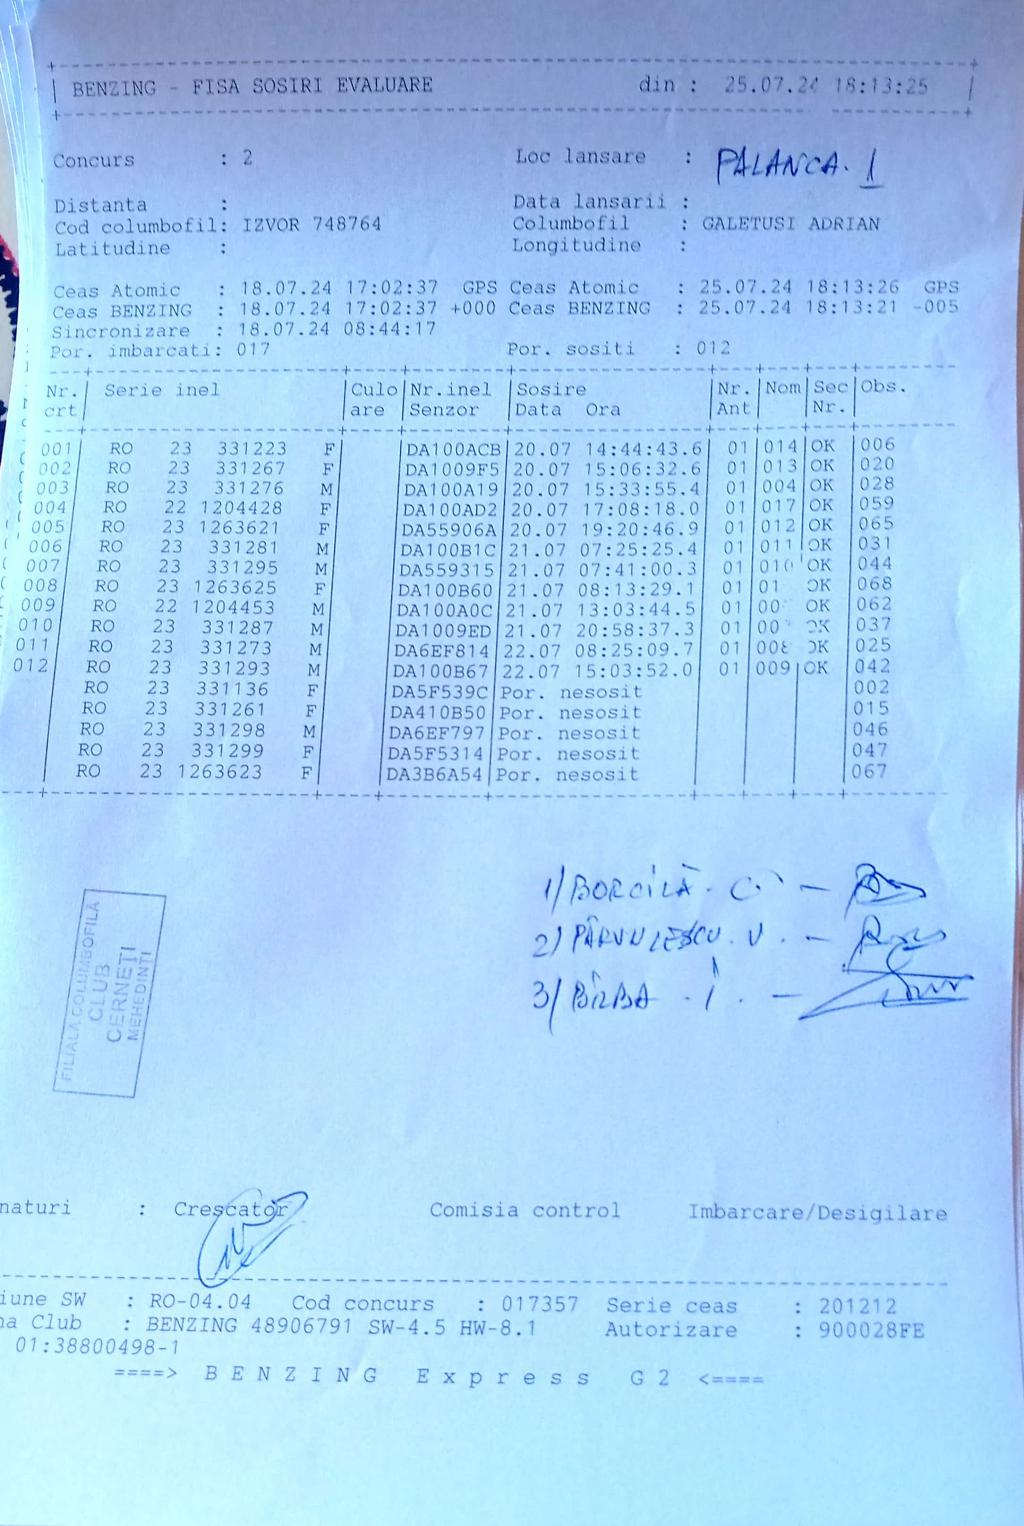 BENZING - FISA SOSIRI EVALUARE din : 25.07.24 18:13:25
Concurs : 2 Loc lansare : PALANCA. 1
Distanta : Data lansarii :
Cod columbofil: IZVOR 748764 Columbofil : GALETUSI ADRIAN
Latitudine : Longitudine :
Ceas Atomic : 18.07.24 17:02:37 GPS Ceas Atomic : 25.07.24 18:13:26 GPS
Ceas BENZING : 18.07.24 17:02:37 +000 Ceas BENZING : 25.07.24 18:13:21 -005
Sincronizare : 18.07.24 08:44:17
Por. imbarcati: 017 Por. sositi : 012
Nr. Serie inel Culo Nr.inel Sosire Nr. Nom Sec Obs.
crt are Senzor Data Ora Ant Nr.
001 RO 23 331223 F DA100ACB 20.07 14:44:43.6 01 014 OK 006
002 RO 23 331267 F DA1009F5 20.07 15:06:32.6 01 013 OK 020
003 RO 23 331276 M DA100A19 20.07 15:33:55.4 01 004 OK 028
004 RO 22 1204428 F DA100AD2 20.07 17:08:18.0 01 017 OK 059
005 RO 23 1263621 F DA55906A 20.07 19:20:46.9 01 012 OK 065
006 RO 23 331281 M DA100B1C 21.07 07:25:25.4 01 011 OK 031
007 RO 23 331295 M DA559315 21.07 07:41:00.3 01 010 OK 044
008 RO 23 1263625 F DA100B60 21.07 08:13:29.1 01 01 OK 068
009 RO 22 1204453 M DA100A0C 21.07 13:03:44.5 01 00 OK 062
010 RO 23 331287 M DA1009ED 21.07 20:58:37.3 01 00 OK 037
011 RO 23 331273 M DA6EF814 22.07 08:25:09.7 01 008 OK 025
012 RO 23 331293 M DA100B67 22.07 15:03:52.0 01 009 OK 042
RO 23 331136 F DA5F539C Por. nesosit 002
RO 23 331261 F DA410B50 Por. nesosit 015
RO 23 331298 M DA6EF797 Por. nesosit 046
RO 23 331299 F DA5F5314 Por. nesosit 047
RO 23 1263623 F DA3B6A54 Por. nesosit 067
1) BORCILĂ. C. -
2) PÂRVULESCU. V. -
3) BÎRBA . I. -
FILIALA COLUMBOFILĂ
CLUB
CERNEȚI
MEHEDINȚI
naturi : Crescator Comisia control Imbarcare/Desigilare
iune SW : RO-04.04 Cod concurs : 017357 Serie ceas : 201212
na Club : BENZING 48906791 SW-4.5 HW-8.1 Autorizare : 900028FE
01:38800498-1
====> BENZING Express G2 <====